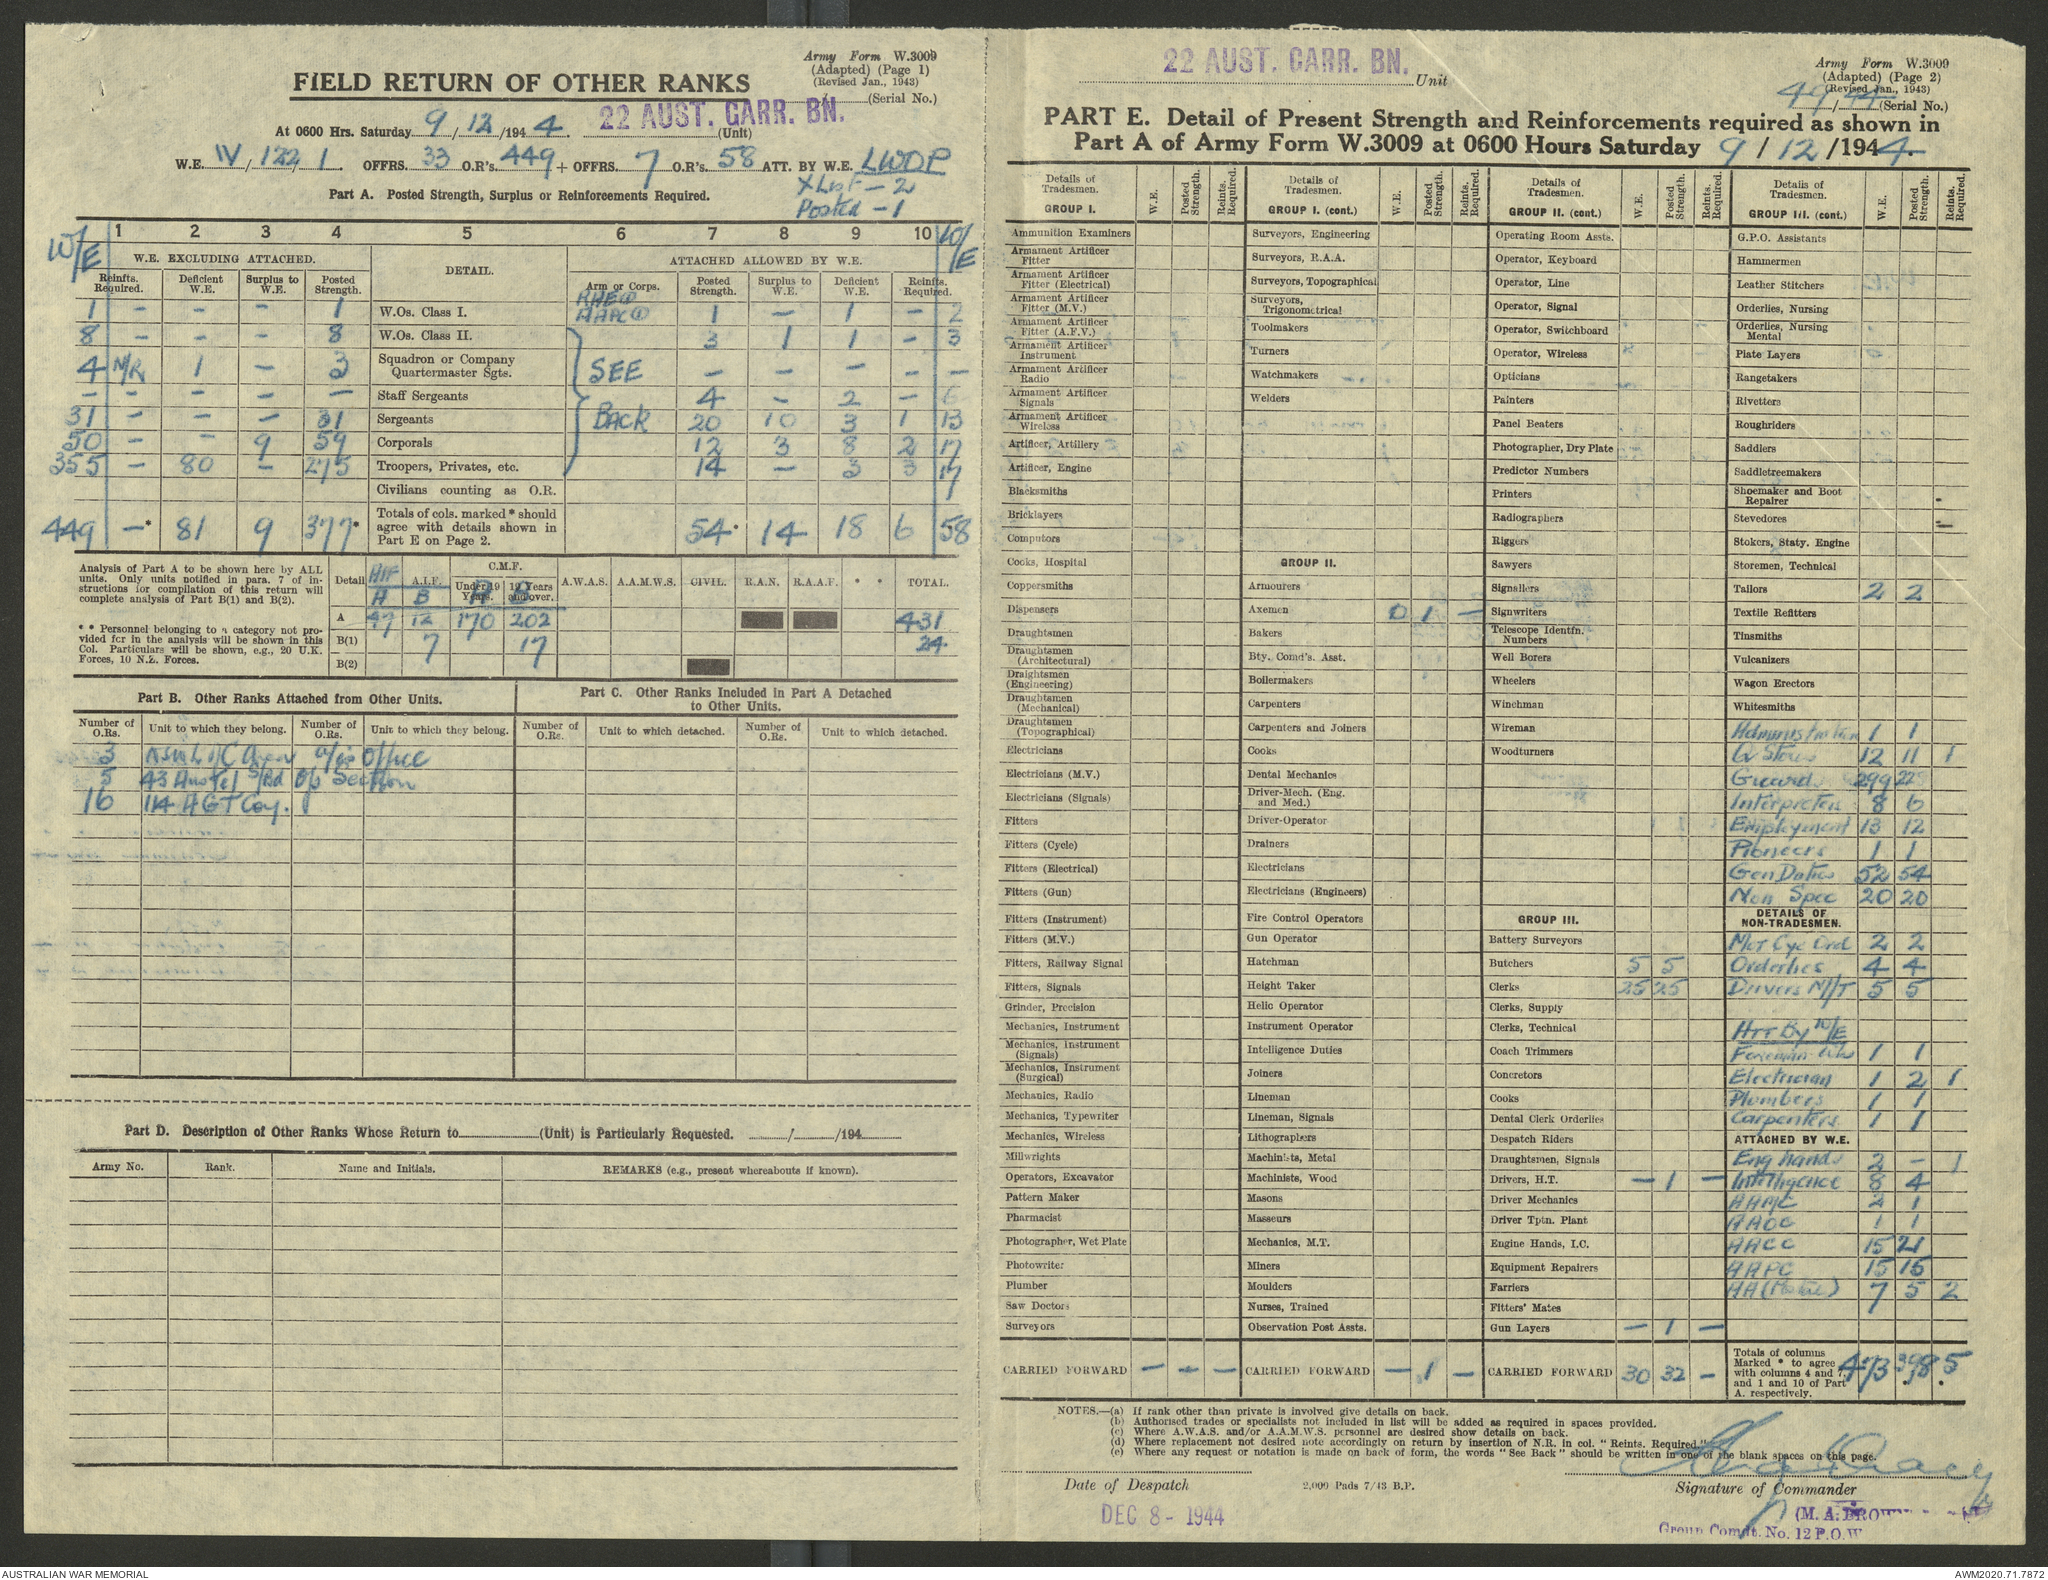 Army Form W.3009
(Adapted) (Page 1)
(Revised Jan., 1943)
FIELD RETURN OF OTHER RANKS
(Serial No.)
22 AUST. GARR. BN.
At 0600 Hrs. Saturday 9/12/1944 (Unit)
W.E. IV/122/1 OFFRS. 33 O.R's. 449 + OFFRS. 7 O.R's. 58 ATT. BY W.E. LWOP
X List - 2
Posted - 1
Part A. Posted Strength, Surplus or Reinforcements Required.
W/E 1 2 3 4 5 6 7 8 9 10 W/E
W.E. EXCLUDING ATTACHED. DETAIL. ATTACHED ALLOWED BY W.E.
Reinfts. Required. Deficient W.E. Surplus to W.E. Posted Strength. Arm or Corps. Posted Strength. Surplus to W.E. Deficient W.E. Reinfts. Required.
1 - - - 1 W.Os. Class I. 1 - 1 - 2
8 - - - 8 W.Os. Class II. 3 1 1 - 3
4 N/R 1 - 3 Squadron or Company Quartermaster Sgts. SEE - - - - -
- - - - - Staff Sergeants 4 - 2 - 6
31 - - - 31 Sergeants BACK 20 10 3 1 13
50 - - 9 59 Corporals 12 3 8 2 17
355 - 80 - 275 Troopers, Privates, etc. 14 - 3 3 17
Civilians counting as O.R.
449 -* 81 9 377* Totals of cols. marked * should agree with details shown in Part E on Page 2. 54* 14 18 6 58
Analysis of Part A to be shown here by ALL units. Only units notified in para. 7 of instructions for compilation of this return will complete analysis of Part B(1) and B(2).
* * Personnel belonging to a category not provided for in the analysis will be shown in this Col. Particulars will be shown, e.g., 20 U.K. Forces, 10 N.Z. Forces.
Detail AIF A.I.F. C.M.F. Under 19 Years. 19 Years and over. A.W.A.S. A.A.M.W.S. CIVIL. R.A.N. R.A.A.F. * * TOTAL.
A B A B
A 47 12 170 202 431
B(1) 7 17 24
B(2)
Part B. Other Ranks Attached from Other Units. Part C. Other Ranks Included in Part A Detached to Other Units.
Number of O.Rs. Unit to which they belong. Number of O.Rs. Unit to which they belong. Number of O.Rs. Unit to which detached. Number of O.Rs. Unit to which detached.
3 Office
5 43 Aust Section
16 114 A G T Coy.
Part D. Description of Other Ranks Whose Return to (Unit) is Particularly Requested. / /194
Army No. Rank. Name and Initials. REMARKS (e.g., present whereabouts if known).
22 AUST. GARR. BN. Unit
Army Form W.3009
(Adapted) (Page 2)
(Revised Jan., 1943)
49/44 (Serial No.)
PART E. Detail of Present Strength and Reinforcements required as shown in
Part A of Army Form W.3009 at 0600 Hours Saturday 9/12/1944.
Details of Tradesmen. GROUP I. W.E. Posted Strength. Reints. Required.
Ammunition Examiners
Armament Artificer Fitter
Armament Artificer Fitter (Electrical)
Armament Artificer Fitter (M.V.)
Armament Artificer Fitter (A.F.V.)
Armament Artificer Instrument
Armament Artificer Radio
Armament Artificer Signals
Armament Artificer Wireless
Artificer, Artillery
Artificer, Engine
Blacksmiths
Bricklayers
Computors
Cooks, Hospital
Coppersmiths
Dispensers
Draughtsmen
Draughtsmen (Architectural)
Draughtsmen (Engineering)
Draughtsmen (Mechanical)
Draughtsmen (Topographical)
Electricians
Electricians (M.V.)
Electricians (Signals)
Fitters
Fitters (Cycle)
Fitters (Electrical)
Fitters (Gun)
Fitters (Instrument)
Fitters (M.V.)
Fitters, Railway Signal
Fitters, Signals
Grinder, Precision
Mechanics, Instrument
Mechanics, Instrument (Signals)
Mechanics, Instrument (Surgical)
Mechanics, Radio
Mechanics, Typewriter
Mechanics, Wireless
Millwrights
Operators, Excavator
Pattern Maker
Pharmacist
Photographer, Wet Plate
Photowriter
Plumber
Saw Doctors
Surveyors
CARRIED FORWARD - - -
Details of Tradesmen. GROUP I. (cont.) W.E. Posted Strength. Reints. Required.
Surveyors, Engineering
Surveyors, R.A.A.
Surveyors, Topographical
Surveyors, Trigonometrical
Toolmakers
Turners
Watchmakers
Welders
GROUP II.
Armourers
Axemen 0 1 -
Bakers
Bty. Comd's. Asst.
Boilermakers
Carpenters
Carpenters and Joiners
Cooks
Dental Mechanics
Driver-Mech. (Eng. and Med.)
Driver-Operator
Drainers
Electricians
Electricians (Engineers)
Fire Control Operators
Gun Operator
Hatchman
Height Taker
Helio Operator
Instrument Operator
Intelligence Duties
Joiners
Lineman
Lineman, Signals
Lithographers
Machinists, Metal
Machinists, Wood
Masons
Masseurs
Mechanics, M.T.
Miners
Moulders
Nurses, Trained
Observation Post Assts.
CARRIED FORWARD - 1 -
Details of Tradesmen. GROUP II. (cont.) W.E. Posted Strength. Reints. Required.
Operating Room Assts.
Operator, Keyboard
Operator, Line
Operator, Signal
Operator, Switchboard
Operator, Wireless
Opticians
Painters
Panel Beaters
Photographer, Dry Plate
Predictor Numbers
Printers
Radiographers
Riggers
Sawyers
Signallers
Signwriters
Telescope Identfn. Numbers
Well Borers
Wheelers
Winchman
Wireman
Woodturners
GROUP III.
Battery Surveyors
Butchers 5 5
Clerks 25 25
Clerks, Supply
Clerks, Technical
Coach Trimmers
Concretors
Cooks
Dental Clerk Orderlies
Despatch Riders
Draughtsmen, Signals
Drivers, H.T. - 1 -
Driver Mechanics
Driver Tptn. Plant
Engine Hands, I.C.
Equipment Repairers
Farriers
Fitters' Mates
Gun Layers - 1 -
CARRIED FORWARD 30 32 -
Details of Tradesmen. GROUP III. (cont.) W.E. Posted Strength. Reints. Required.
G.P.O. Assistants
Hammermen
Leather Stitchers
Orderlies, Nursing
Orderlies, Nursing Mental
Plate Layers
Rangetakers
Rivetters
Roughriders
Saddlers
Saddletreemakers
Shoemaker and Boot Repairer
Stevedores
Stokers, Staty. Engine
Storemen, Technical
Tailors 2 2
Textile Refitters
Tinsmiths
Vulcanizers
Wagon Erectors
Whitesmiths
Administration 1 1
Q Store 12 11 1
Guards 299 225
Interpreters 8 6
Employment 13 12
Pioneers 1 1
Gen Duties 52 54
Non Spec 20 20
DETAILS OF NON-TRADESMEN.
Mot Cyc Ord 2 2
Orderlies 4 4
Drivers M/T 5 5
Att By W/E
Foreman 1 1
Electrician 1 2 1
Plumbers 1 1
Carpenters 1 1
ATTACHED BY W.E.
Eng hands 2 - 1
Intelligence 8 4
AAMC 2 1
AAOC 1 1
AACC 15 21
AAPC 15 15
AA (Postal) 7 5 2
Totals of columns Marked * to agree with columns 4 and 7 and 1 and 10 of Part A. respectively. 473 398 5
NOTES.—(a) If rank other than private is involved give details on back.
(b) Authorised trades or specialists not included in list will be added as required in spaces provided.
(c) Where A.W.A.S. and/or A.A.M.W.S. personnel are desired show details on back.
(d) Where replacement not desired note accordingly on return by insertion of N.R. in col. "Reints. Required."
(e) Where any request or notation is made on back of form, the words "See Back" should be written in one of the blank spaces on this page.
Date of Despatch 2,000 Pads 7/43 B.P. Signature of Commander
DEC 8 - 1944
(M. A. BROWN
Group Comdt. No. 12 P.O.W
AUSTRALIAN WAR MEMORIAL AWM2020.71.7872